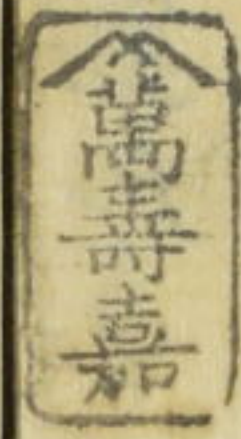 萬壽嘉